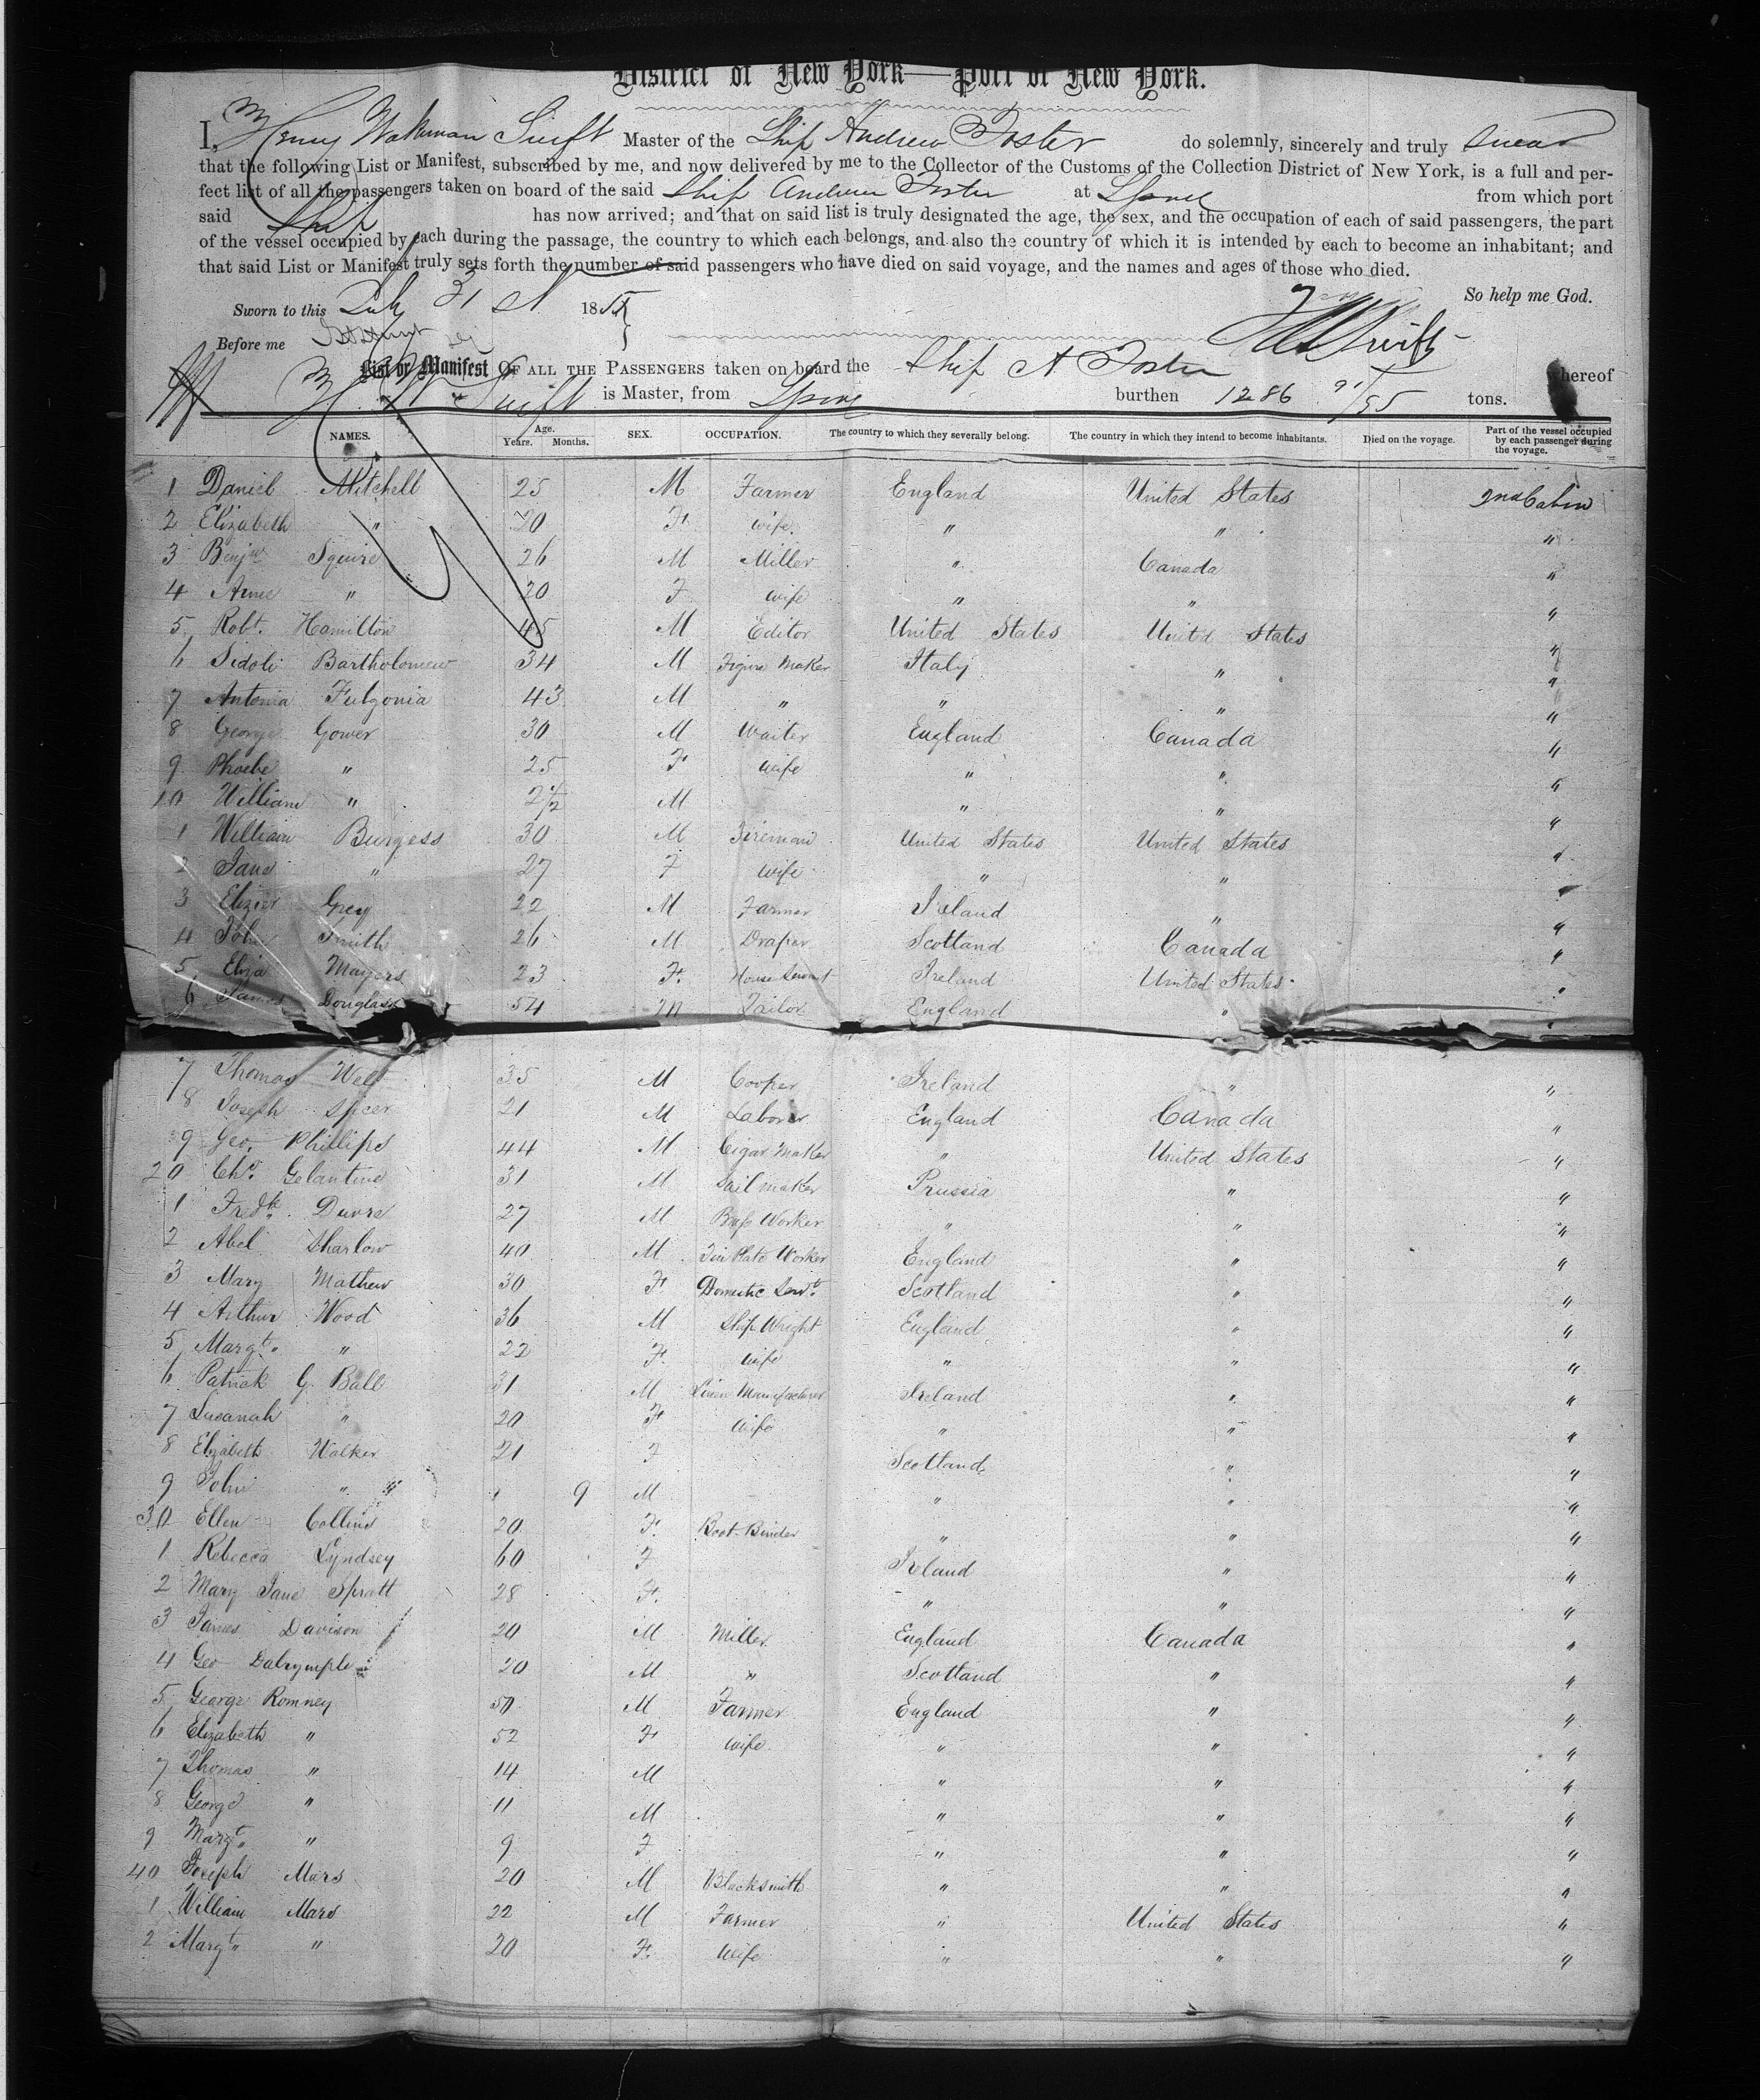 District of New York—Port of New York.
I, Henry Wakeman Swift Master of the Ship Andrew Foster do solemnly, sincerely and truly swear
that the following List or Manifest, subscribed by me, and now delivered by me to the Collector of the Customs of the Collection District of New York, is a full and per-
fect list of all the passengers taken on board of the said Ship Andrew Foster at Lpool from which port
said Ship has now arrived; and that on said list is truly designated the age, the sex, and the occupation of each of said passengers, the part
of the vessel occupied by each during the passage, the country to which each belongs, and also the country of which it is intended by each to become an inhabitant; and
that said List or Manifest truly sets forth the number of said passengers who have died on said voyage, and the names and ages of those who died.
So help me God.
Sworn to this July 31 st 1855
Before me
H W Swift
List or Manifest OF ALL THE PASSENGERS taken on board the Ship A Foster whereof
H W Swift is Master, from Lpool burthen 1286 91/95 tons.
NAMES. Age. Years. Months. SEX. OCCUPATION. The country to which they severally belong. The country in which they intend to become inhabitants. Died on the voyage. Part of the vessel occupied by each passenger during the voyage.
1 Daniel Mitchell 25 M Farmer England United States 2nd Cabin
2 Elizabeth " 20 F. wife " " "
3 Benjn Squire 26 M Miller " Canada "
4 Anne " 20 F wife " " "
5 Robt. Hamilton 45 M Editor United States United States "
6 Sidoli Bartholomew 34 M Figure Maker Italy " "
7 Antonia Fulgonia 43 M " " " "
8 George Gower 30 M Waiter England Canada "
9 Phoebe " 25 F wife " " "
10 William " 2 1/2 M " " "
1 William Burgess 30 M Fireman United States United States "
2 Jane " 27 F wife " " "
3 Elizier Grey 22 M Farmer Ireland " "
4 John Smith 26 M Draper Scotland Canada "
5 Eliza Mayers 23 F. House Servant Ireland United States "
6 James Douglass 54 M Tailor England " "
7 Thomas Wel 35 M Cooper Ireland " "
8 Joseph Spicer 21 M Laborer England Canada "
9 Geo. Phillips 44 M Cigar Maker " United States "
20 Chs. Gelantine 31 M Sail maker Prussia " "
1 Fredk. Duvre 27 M Brass Worker " " "
2 Abel Sharlow 40 M Tin Plate Worker England " "
3 Mary Mathew 30 F Domestic Servt. Scotland " "
4 Arthur Wood 36 M Ship Wright England " "
5 Margt. " 22 F. wife " " "
6 Patrick G. Ball 31 M Linen Manufacturer Ireland " "
7 Susanah " 20 F wife " " "
8 Elizabeth Walker 21 F Scotland " "
9 John " 9 M " " "
30 Ellen Collins 20 F. Boot-Binder " " "
1 Rebecca Lyndsey 60 F Ireland " "
2 Mary Jane Spratt 28 F. " " "
3 James Davison 20 M Miller England Canada "
4 Geo Dalrymple 20 M " Scotland " "
5 George Romney 50 M Farmer England " "
6 Elizabeth " 52 F wife " " "
7 Thomas " 14 M " " "
8 George " 11 M " " "
9 Margt. " 9 F " " "
40 Joseph Mars 20 M Blacksmith " " "
1 William Mars 22 M Farmer " United States "
2 Margt. " 20 F. wife " " "